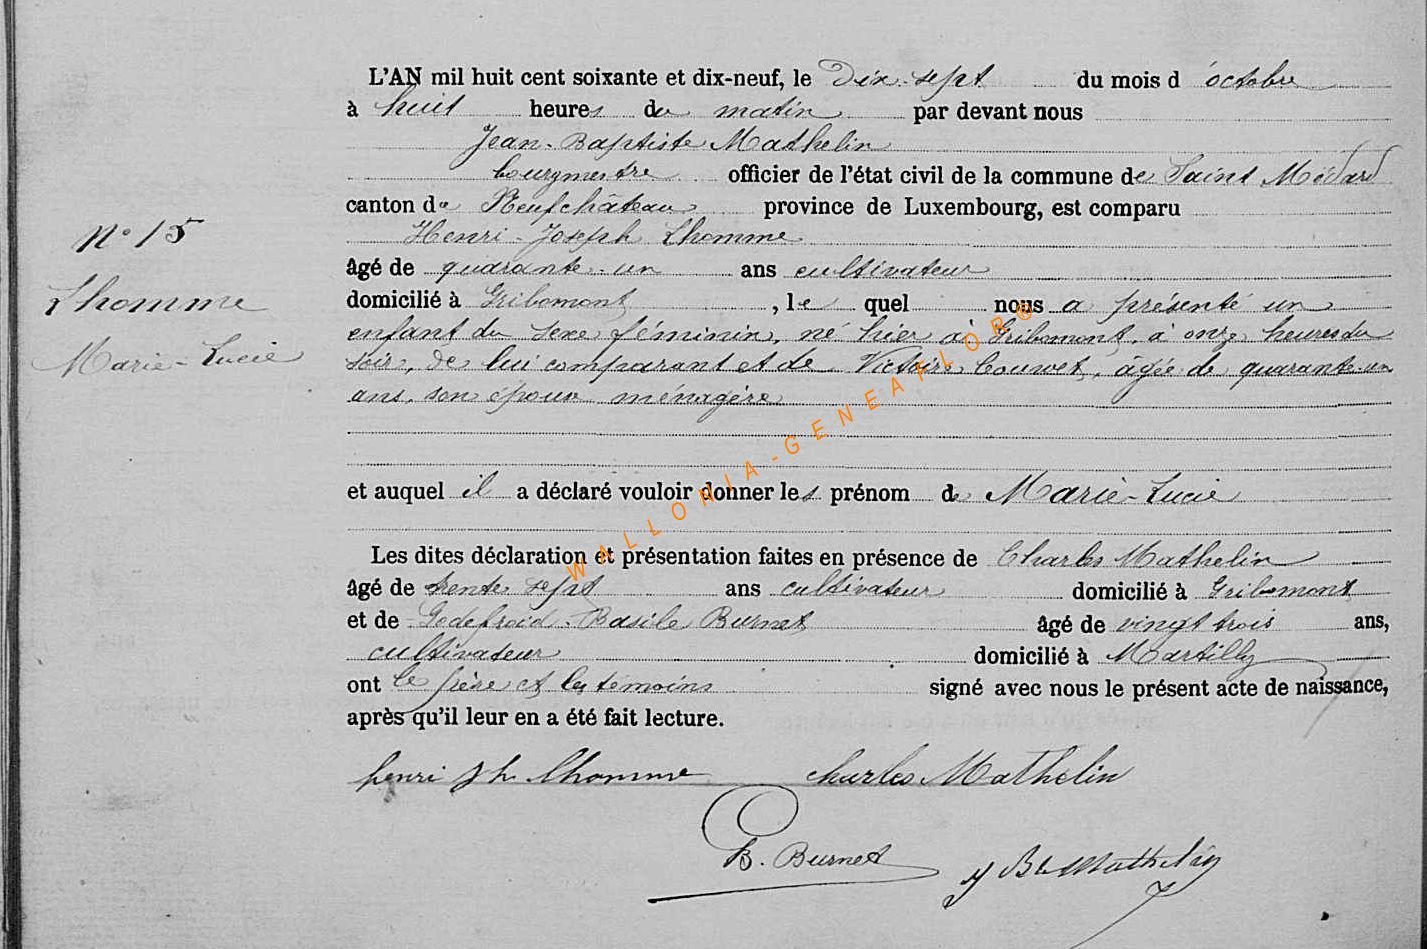 L'AN mil huit cent soixante et dix-neuf, le Dix-sept du mois d'octobre
à huit heures du matin par devant nous
Jean-Baptiste Mathelin
bourgmestre officier de l'état civil de la commune de Saint Médard
canton de Neufchâteau province de Luxembourg, est comparu
Henri-Joseph Lhomme
âgé de quarante-un ans cultivateur
domicilié à Gribomont, le quel nous a présenté un
enfant du sexe féminin, né hier à Gribomont, à onze heures du
soir, de lui comparant et de Victoire Couvet, âgée de quarante-un
ans, son épouse ménagère
et auquel il a déclaré vouloir donner les prénom de Marie-Lucie
Les dites déclaration et présentation faites en présence de Charles Mathelin
âgé de trente sept ans cultivateur domicilié à Gribomont
et de Godefroid-Basile Burnet âgé de vingt trois ans,
cultivateur domicilié à Martilly
ont le père et les témoins signé avec nous le présent acte de naissance,
après qu'il leur en a été fait lecture.
henri jh lhomme charles Mathelin
B. Burnet J Bte Mathelin
N° 15
Lhomme
Marie-Lucie
WALLONIA-GENEAFLOR®